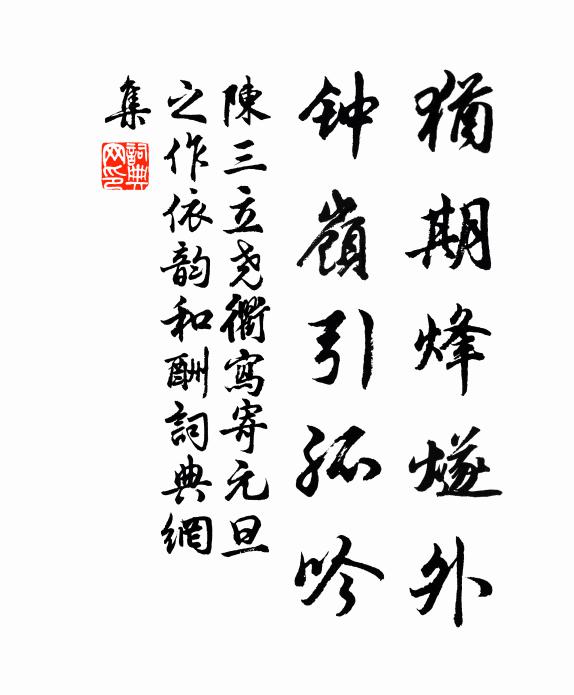 猶期烽燧外
钟嶺引孤吟
陳三立尧衢寫寄元旦
之作依韵和酬詞典網
集
詞典网印